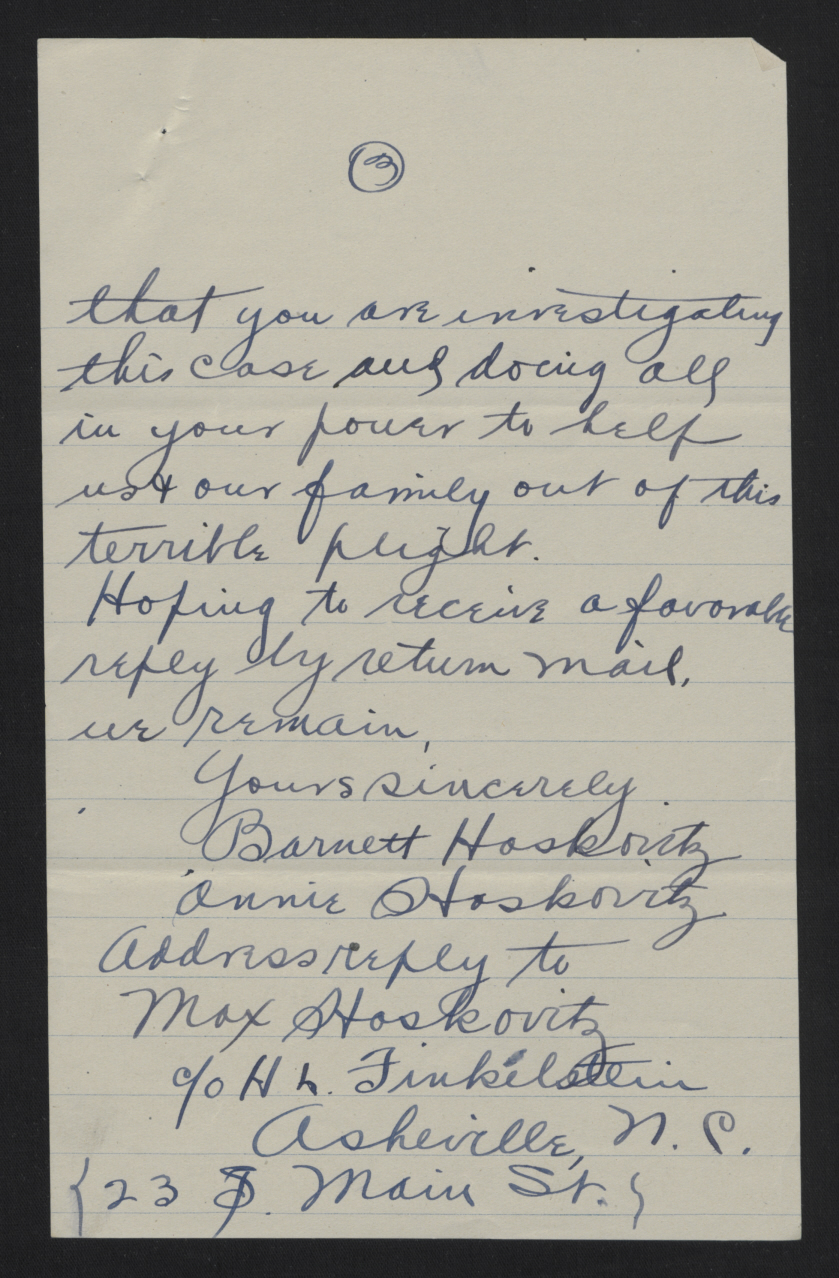 3
that you are investigating
this case and doing all
in your power to help
us & our family out of this
terrible plight.
Hoping to receive a favorable
reply by return mail,
we remain,
Yours sincerely
Barnett Hoskovitz
Annie Hoskovitz
Address reply to
Max Hoskovitz
c/o H L. Finkelstein
Asheville, N. C.
{23 S. Main St.}